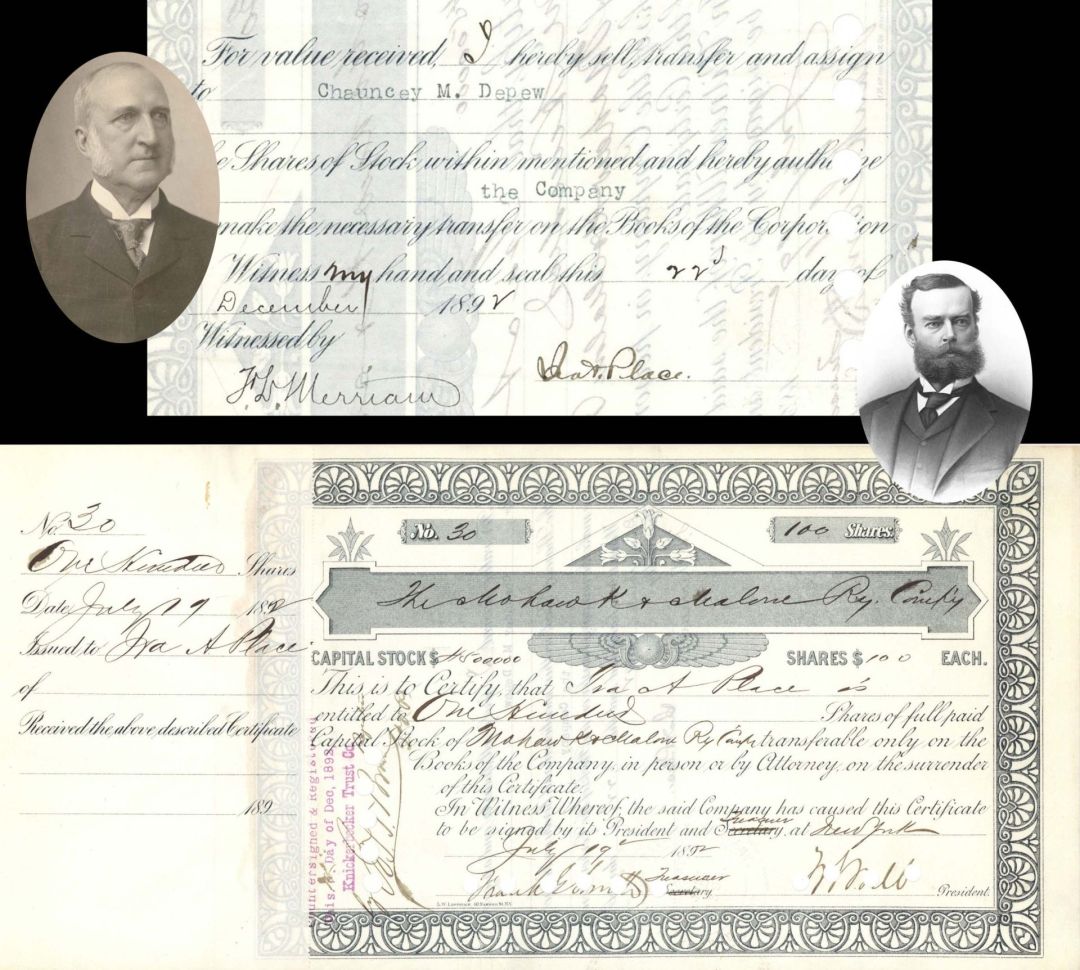 For value received, I hereby sell, transfer and assign
to Chauncey M. Depew
e Shares of Stock within mentioned and hereby authorize
the Company
make the necessary transfer on the Books of the Corporation
Witness my hand and seal this 22d day of
December 1892
Witnessed by
Ira A. Place.
F. L. Merriam
No. 30
One Hundred Shares
Date July 19 1892
Issued to Ira A Place
of
Received the above described Certificate
189
No. 30
100 Shares
The Mohawk & Malone Ry. Comp'y
CAPITAL STOCK $ 4500000 SHARES $ 100 EACH.
This is to Certify, that Ira A Place is
entitled to One Hundred Shares of full paid
Capital Stock of Mohawk & Malone Ry Comp'y transferable only on the
Books of the Company, in person or by Attorney, on the surrender
of this Certificate.
In Witness Whereof, the said Company has caused this Certificate
to be signed by its President and Secretary Treasurer, at New York
July 19th 1892
Treasurer
Secretary.
President.
L.W. Lawrence,
ountersigned & Registered
his Day of Dec, 1892
Knickerbocker Trust Co.
by